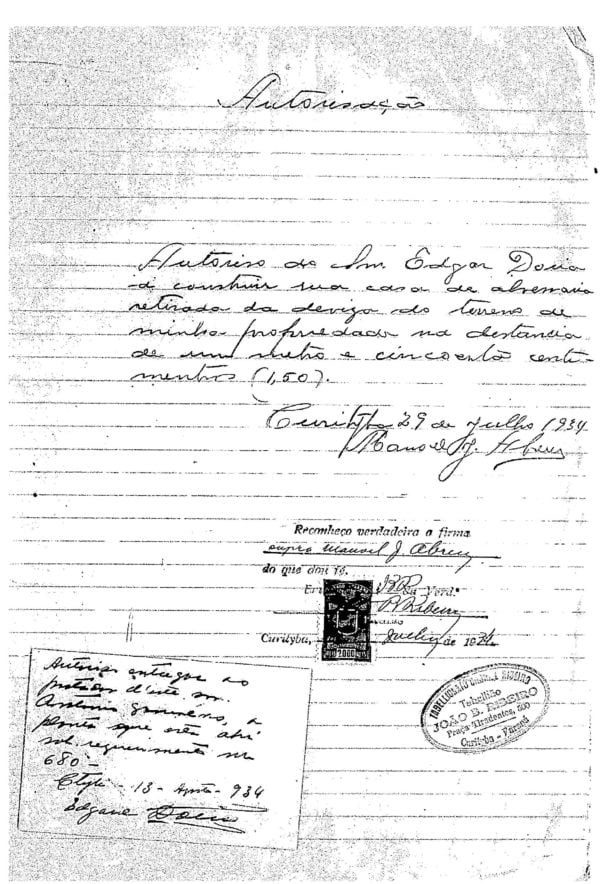 Autorisação
Autoriso ao Snr. Edgar Doria
á construir sua casa de alvenaria
retirada da deviza do terreno de
minha propriedade na distancia
de um metro e cincoenta centi-
mentros (1,50).
Curityba 29 de Julho 1934
Manoel J. Abreu
Reconheço verdadeira a firma
supra Manoel J. Abreu
do que dou fé.
Em da Verd.
Ribeiro
2000
Curityba, de 1934
TABELLIONATO RIBEIRO
Tabellião
JOÃO B. RIBEIRO
Praça Tiradentes, 500
Curitiba - Paraná
Autoriso entregar ao
portador d'este snr.
Antonio a
planta que está ahi
sob requerimento no
680 -
13 - Agosto - 934
Edgar Doria